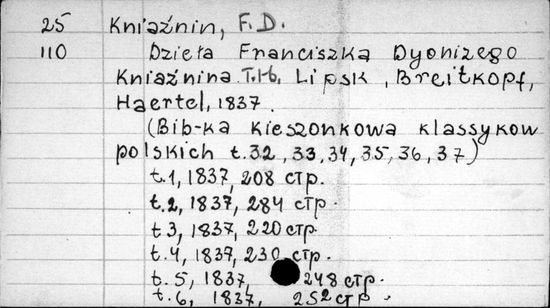 25 Kniaźnin, F.D.
110 Dzieła Franciszka Dyonizego
Kniaźnina T.1-6. Lipsk, Breitkopf,
Haertel, 1837.
(Bib-ka kieszonkowa klassykow
polskich t.32, 33, 34, 35, 36, 37)
t.1, 1837, 208 стр.
t.2, 1837, 284 стр.
t3, 1837, 220 стр.
t.4, 1837, 230 стр.
t.5, 1837, 248 стр.
t.6, 1837, 252 стр.